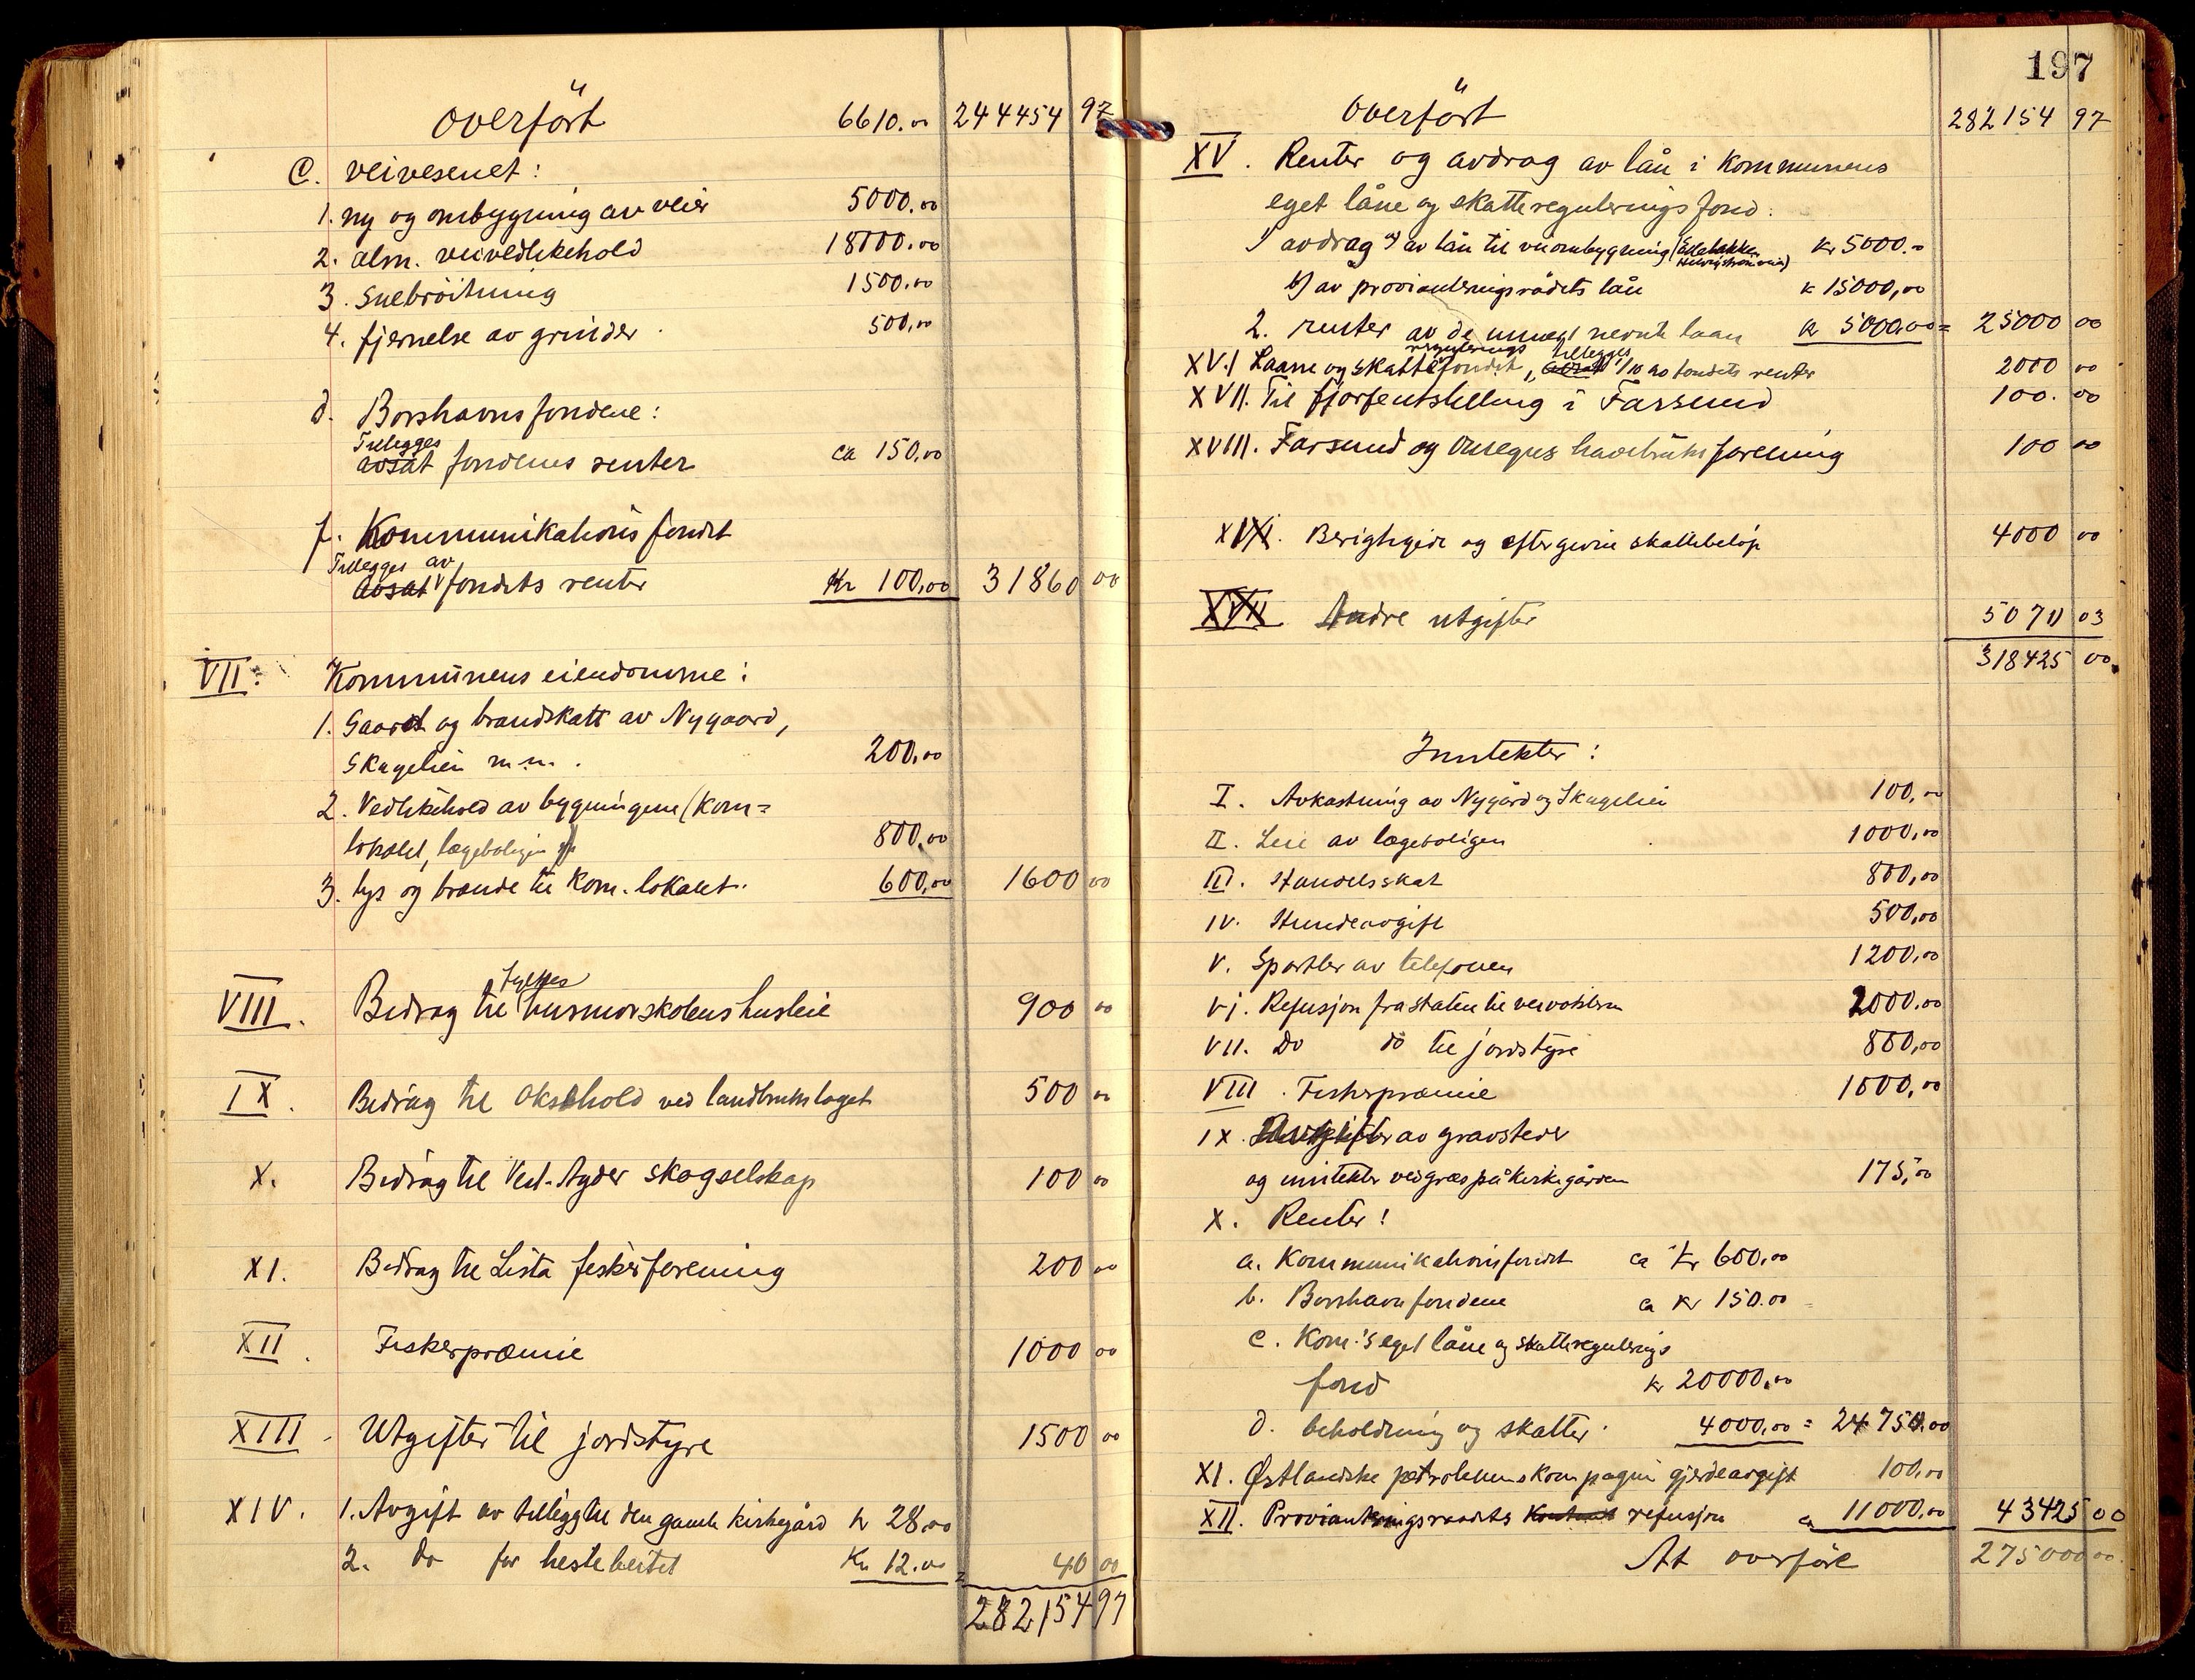 overført 6610.00 244454 97
C. veivesenet:
1. ny og ombygning av veier 5000.00
2. alm. veivedlikehold 18000.00
3. Snebröitning 1500.00
4. fjernelse av grinder. 500,00
d. Borshavnsfondene:
Tillegges
avsat fondenes renter ca 150,00
f. Kommunikationsfondet
Tillegges av
avsat fondets renter Kr 100,00 31860 00
VII. Kommunens eiendomme:
1. Gaard og brandskatt av Nygaard,
Skagelien m.m. 200,00
2. Vedlikehold av bygningene (kom=
lokalet, lægeboligen 800,00
3. lys og brænde til kom. lokalet. 600,00 1600 00
VIII. Bidrag til husmorskolens husleie 900 00
IX. Bidrag til oksehold ved landbrukslaget 500 00
X. Bidrag til Vest-Agder skogselskap 100 00
XI. Bidrag til Lista fiskerforening 200 00
XII. Fiskerpræmie 1000 00
XIII. Utgifter til jordstyre 1500 00
XIV. 1. Avgift av tillegg til den gamle kirkegård kr 28,00
2. do for hestebeitet Kr. 12.00 = 40 00
282154 97
197
overført 282154 97
XV. Renter og avdrag av lån i kommunens
eget låne og skattereguleringsfond:
1 avdrag a) av lån til veiombygning kr 5000.-
b) av provianteringsrådets lån k 15000,00
2. renter av de nevnte laan kr 5000,00 = 25000 00
regulerings tillegges
XVI Laane og skattefondet, avsat 1/10 av fondets renter 2000 00
XVII. Til fjørfeutstilling i Farsund 100. 00
XVIII. Farsund og Omegns havebruksforening 100 00
XIX. Berigtigede og eftergivne skattebeløp 4000 00
XVII Andre utgifter 5070 03
318425 00
Inntekter:
I. Avkastning av Nygård og Skagelien 100,00
II. Leie av lægeboligen 1000,00
III. Handelsskat 800,00
IV. Hundeavgift 500,00
V. Sportler av telefonen 1200,00
VI. Refusjon fra staten til veivokteren 2000.00
VII. Do do til jordstyre 800,00
VIII. Fiskerpræmie 1000,00
IX. Avgifter av gravsteder
og inntekter ved græs på kirkegården 175,00
X. Renter:
a. Kommunikationsfondet ca kr 600,00
b. Borshavnfondene ca kr 150.00
c. Kom:s eget låne og skatteregulerings
fond kr 20000,00
d. beholdning og skatter. 4000,00 = 24750.00
XI. Østlandske petroleumskompagni gjerdeavgift 100,00
XII. Provianteringsraadets refusjon ca 11000,00 43425 00
At overføre 275000 00